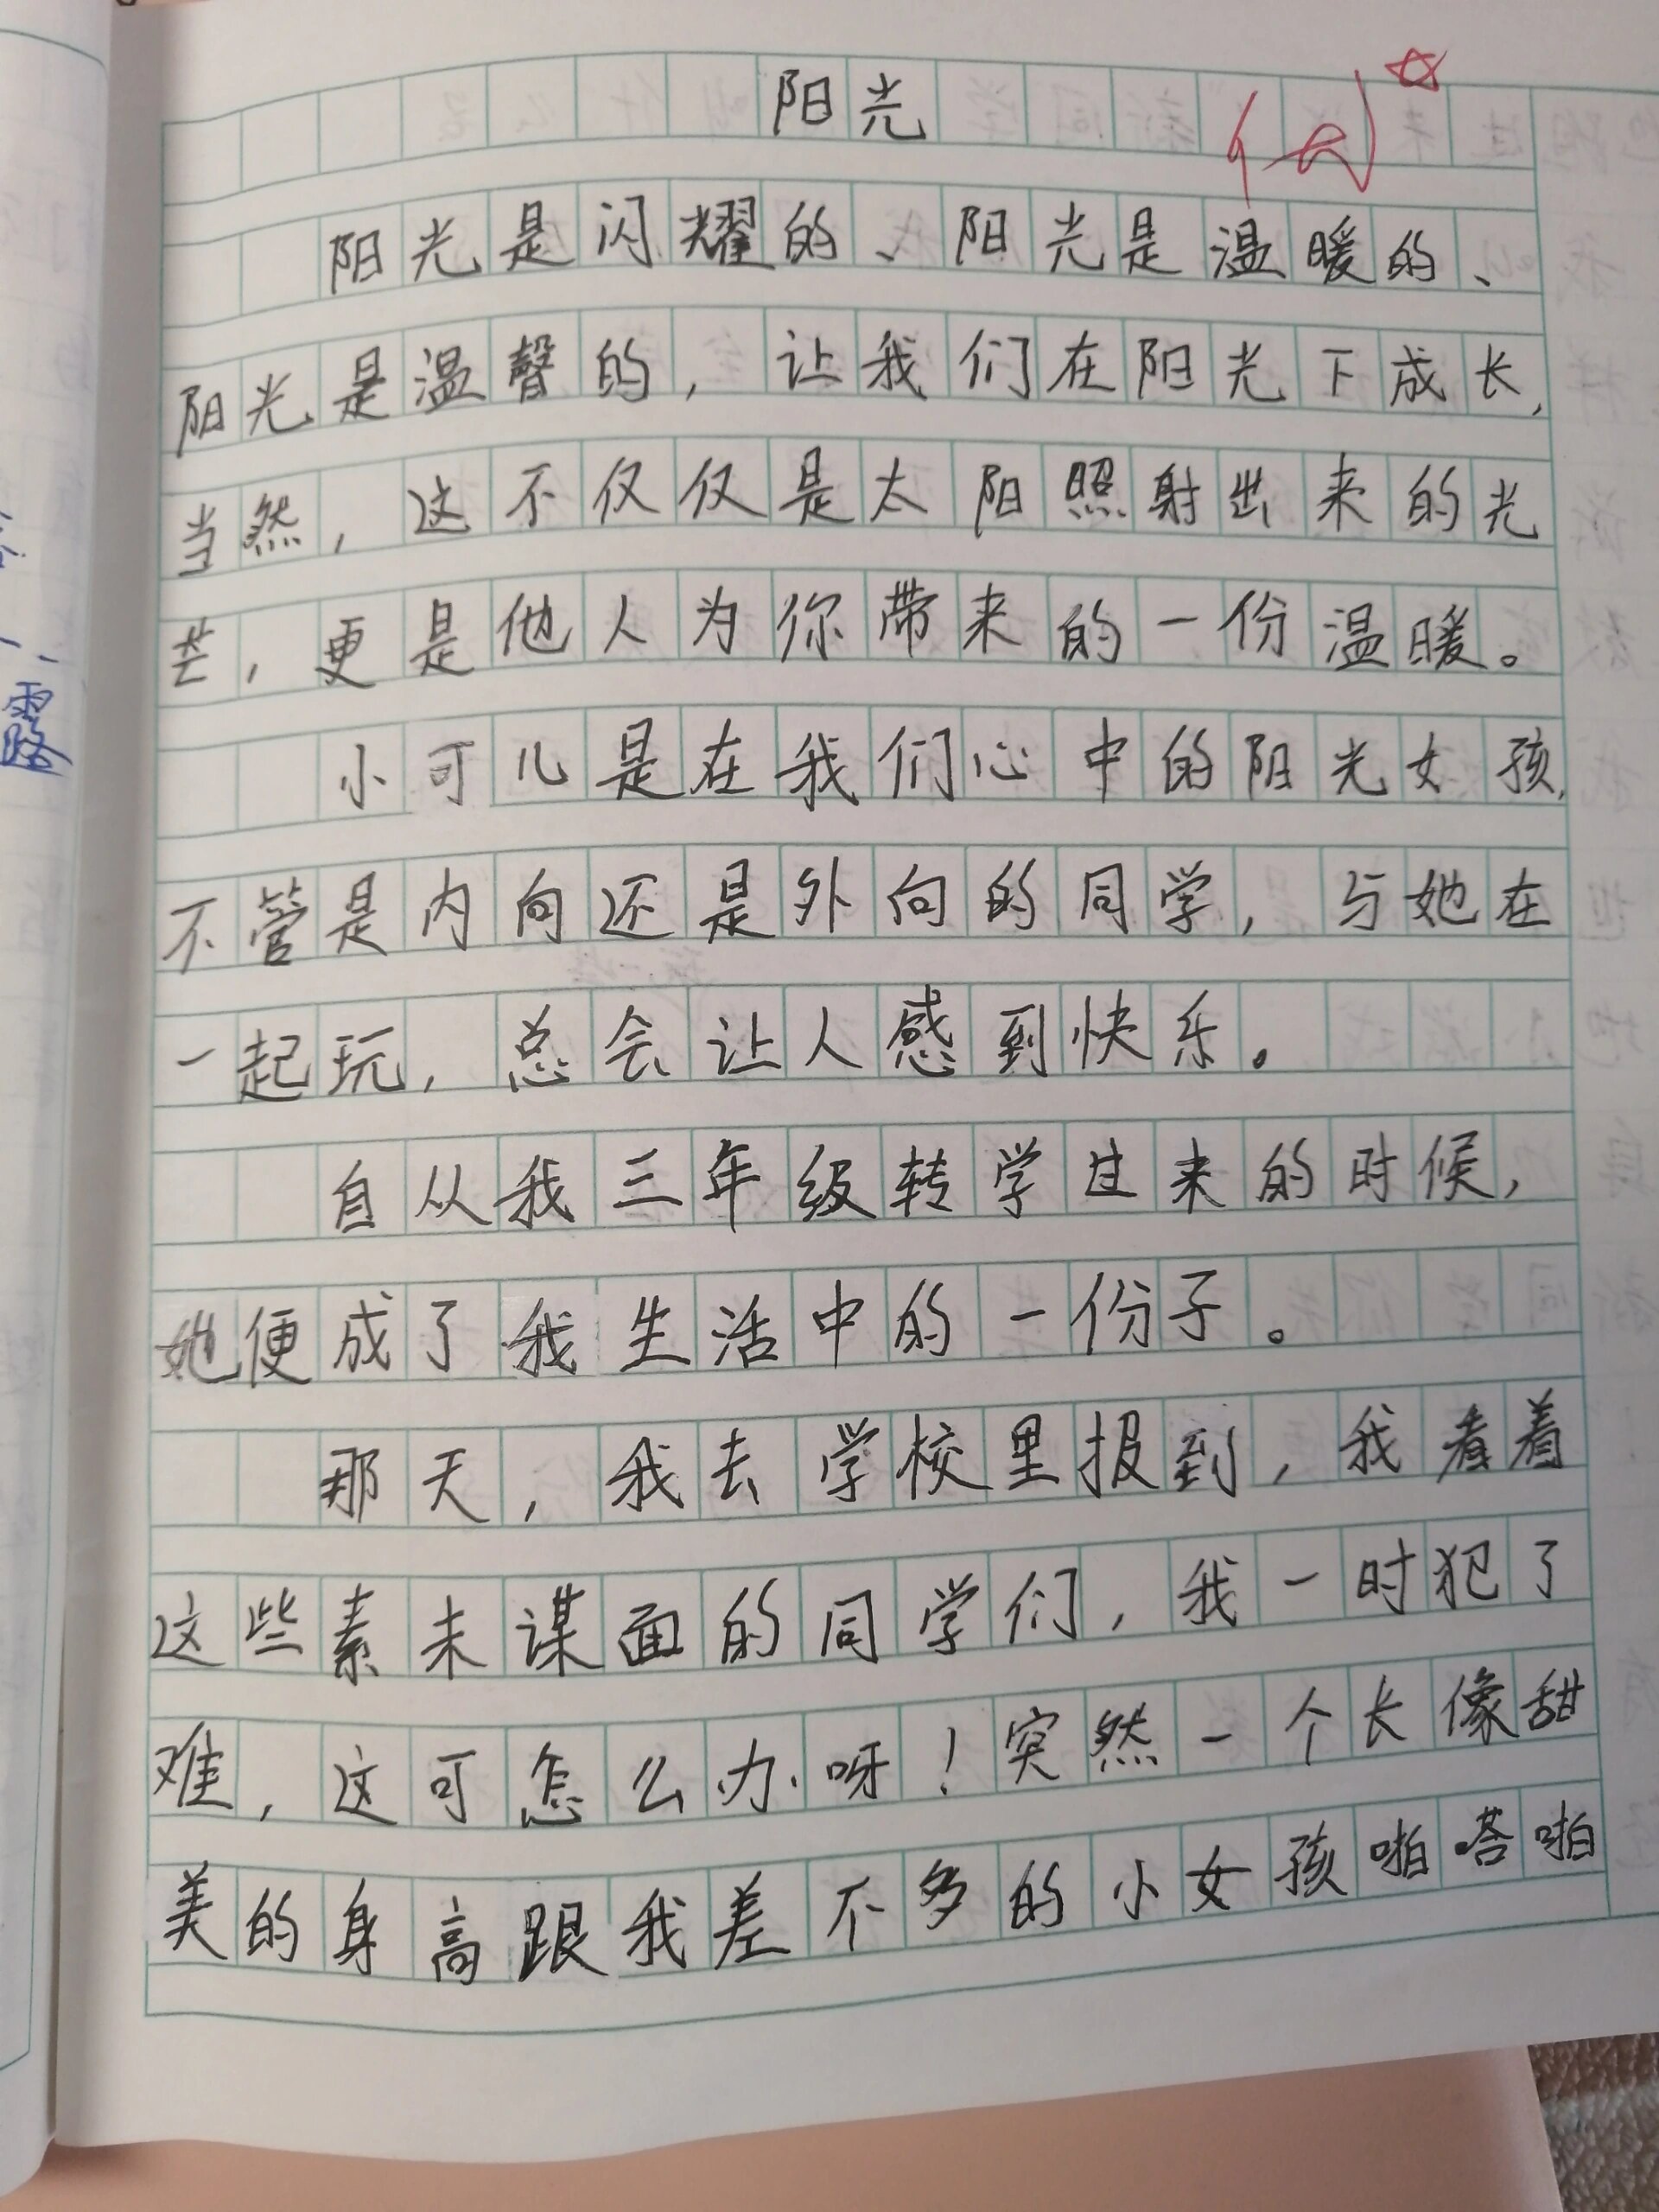 阳光
阳光是闪耀的、阳光是温暖的、
阳光是温馨的，让我们在阳光下成长，
当然，这不仅仅是太阳照射出来的光
芒，更是他人为你带来的一份温暖。
小可儿是在我们心中的阳光女孩，
不管是内向还是外向的同学，与她在
一起玩，总会让人感到快乐。
自从我三年级转学过来的时候，
她便成了我生活中的一份子。
那天，我去学校里报到，我看着
这些素未谋面的同学们，我一时犯了
难，这可怎么办呀！突然一个长像甜
美的身高跟我差不多的小女孩啪嗒啪
露